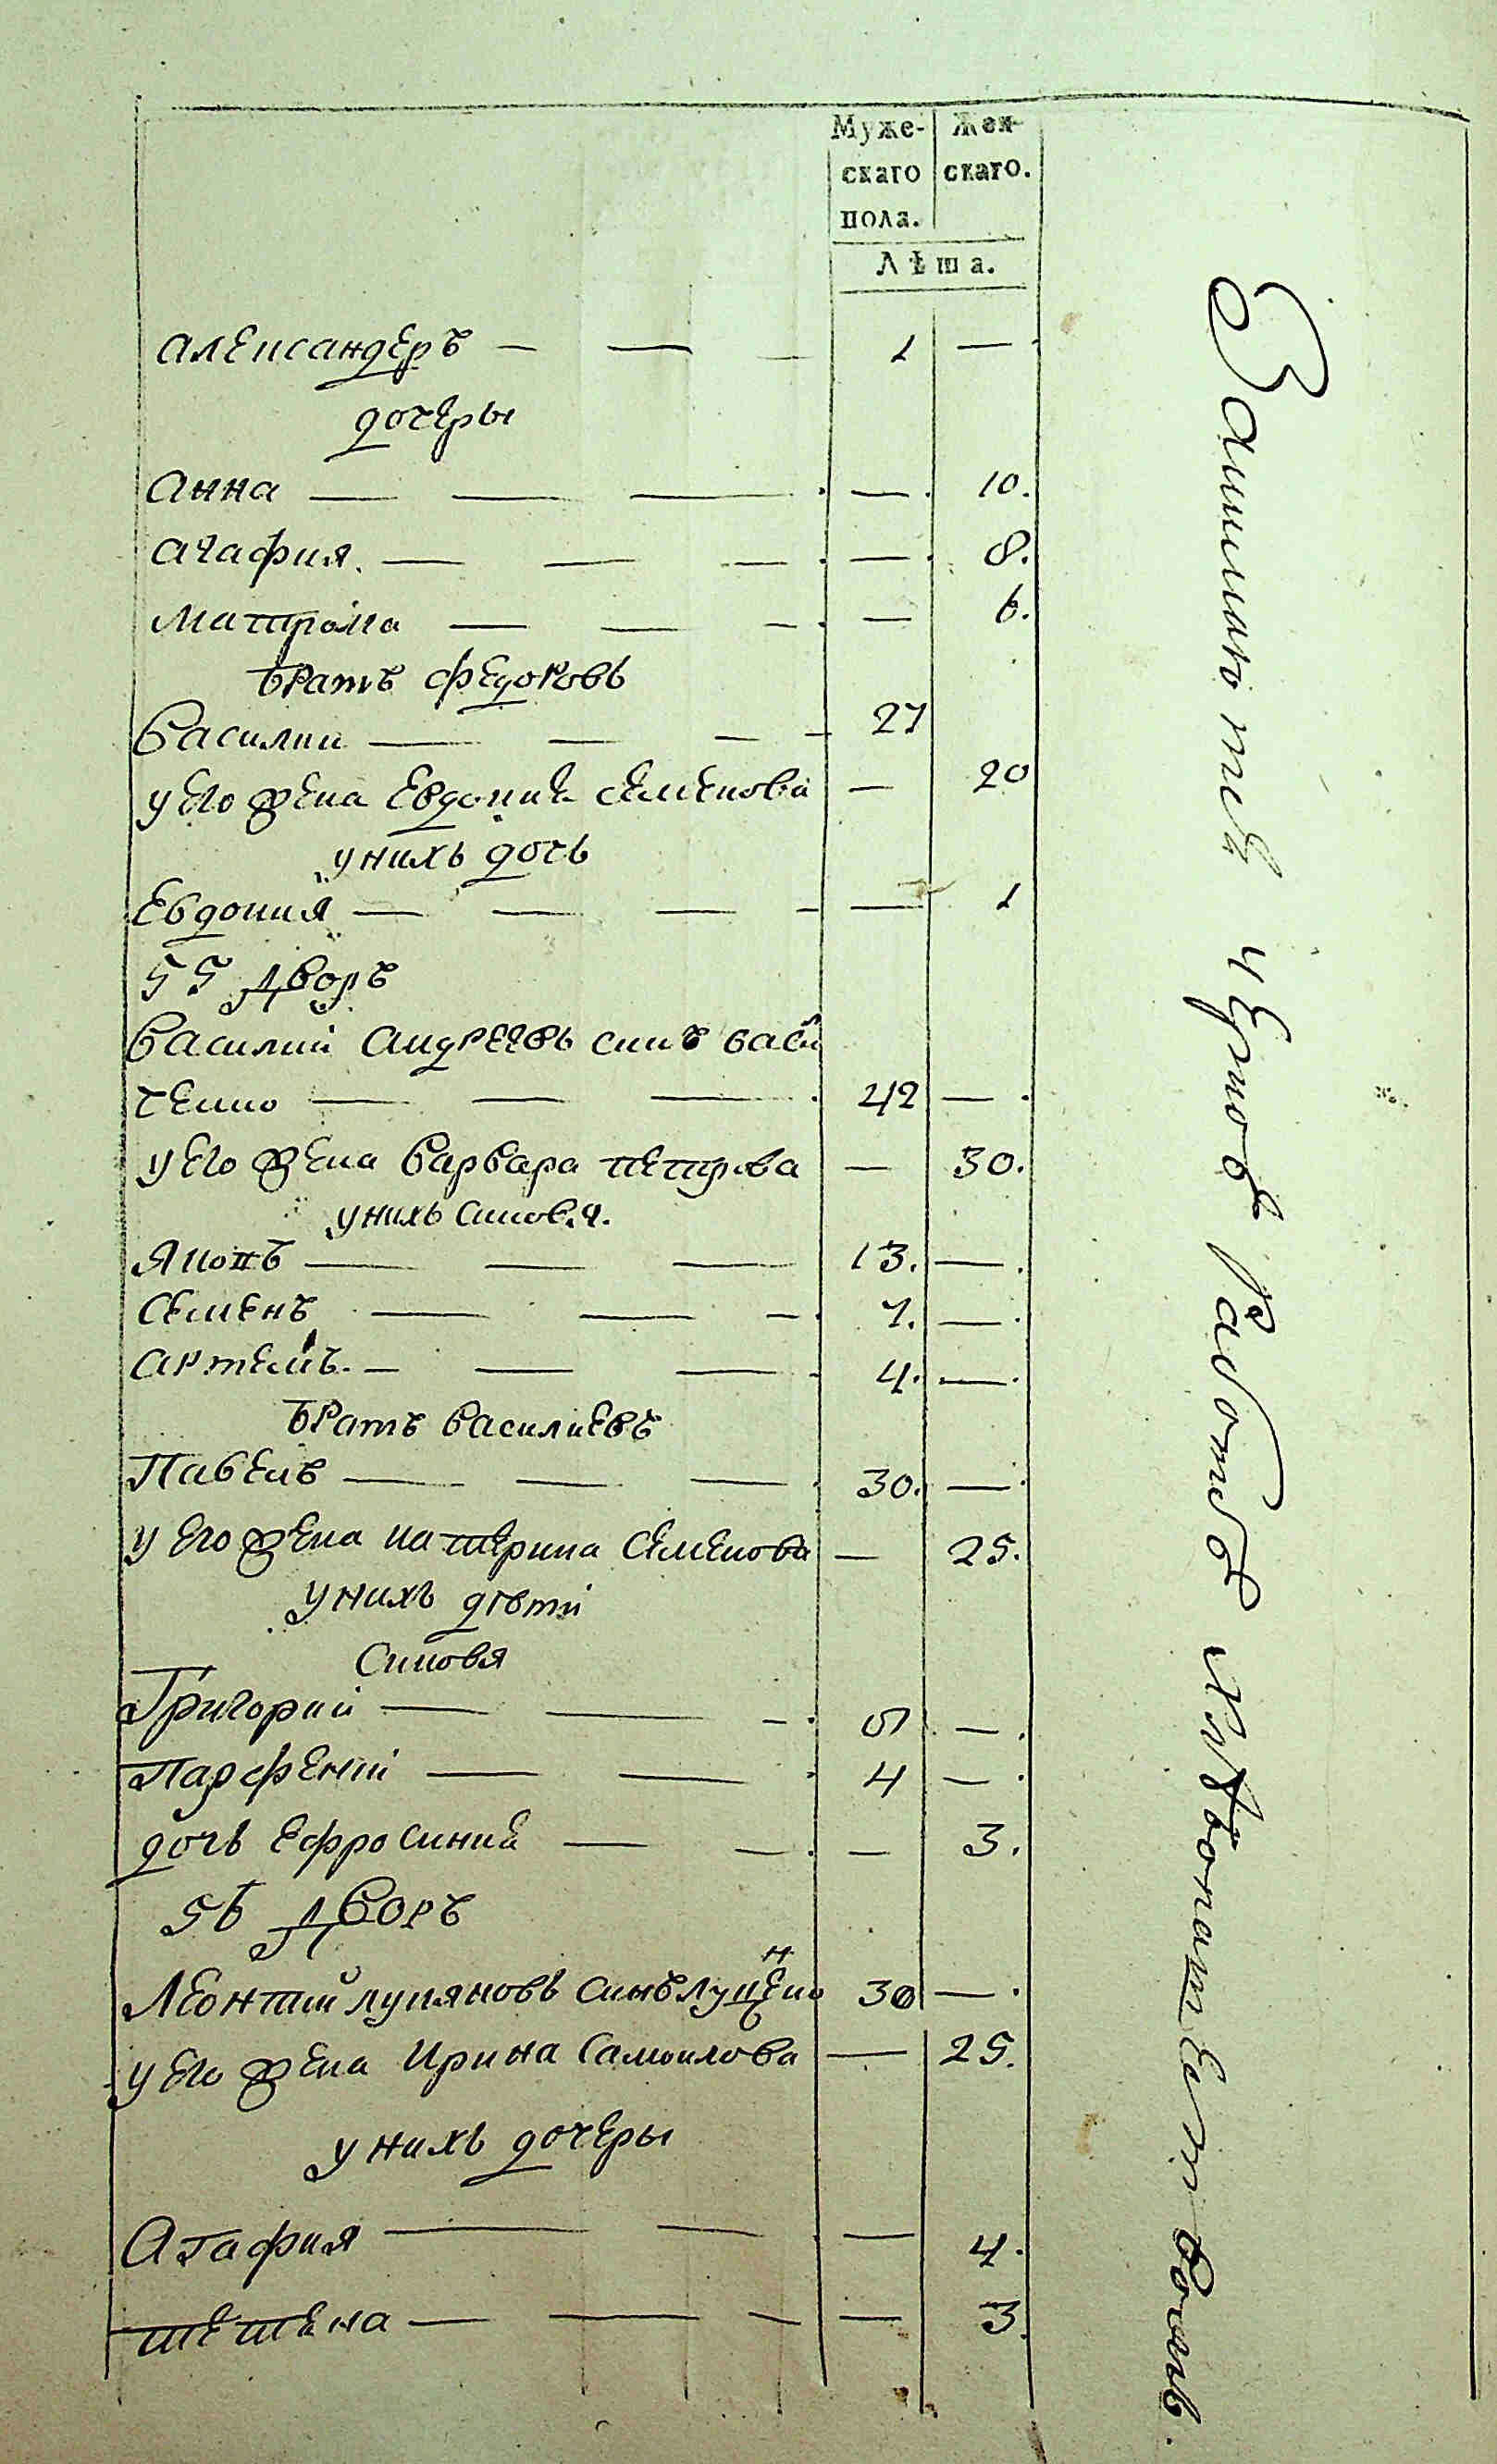 Муже- Жен-
скаго скаго.
пола.
Лѣта.
Александеръ — — — 1 — .
дочеры
Анна — — — . — . 10.
Агафия. — — — . — . 8.
Матрона — — — . — 6.
братъ Федоровъ
Василии — — — — 27
у его жена Евдокиѣ Семенова — 20
у нихъ дочь
Евдокия — — — — — 1
55 Дворъ
Василий Андреевъ синъ Васи
ченко — — — . 42 — .
у его жена Варвара Петрова — 30.
у нихъ синов. я.
Якопъ — — — 13. — .
Семенъ — — — . 7. — .
Артемъ. — — — . 4. — .
братъ Василиевъ
Павелъ — — — . 30. — .
у его жена Катерина Семенова — 25.
у нихъ дѣти
Синовя
Григорий — — — . 5 — .
Парфений — — . 4 — .
дочь Ефросиния — — . — 3.
56 Дворъ
Леонтий Лукяновъ синъ Луценко 30 — .
у его жена Ирина Самоилова — 25.
у нихъ дочеры
Агафия — — . — 4.
Тетена — — — — 3.